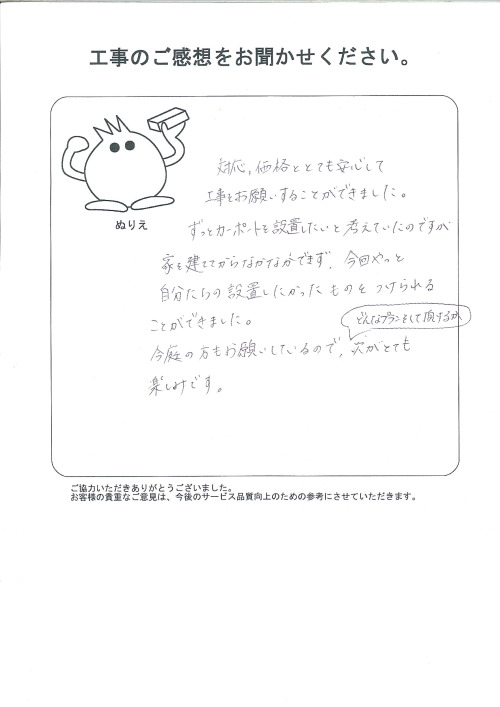 工事のご感想をお聞かせください。
ぬりえ
対応,価格ととても安心して
工事をお願いすることができました。
ずっとカーポートを設置したいと考えていたのですが
家を建ててからなかなかできず、今回やっと
自分たちの設置したかったものをつけられる
ことができました。
どんなプランをして頂けるか
今庭の方もお願いしているので、次がとても
楽しみです。
ご協力いただきありがとうございました。
お客様の貴重なご意見は、今後のサービス品質向上のための参考にさせていただきます。